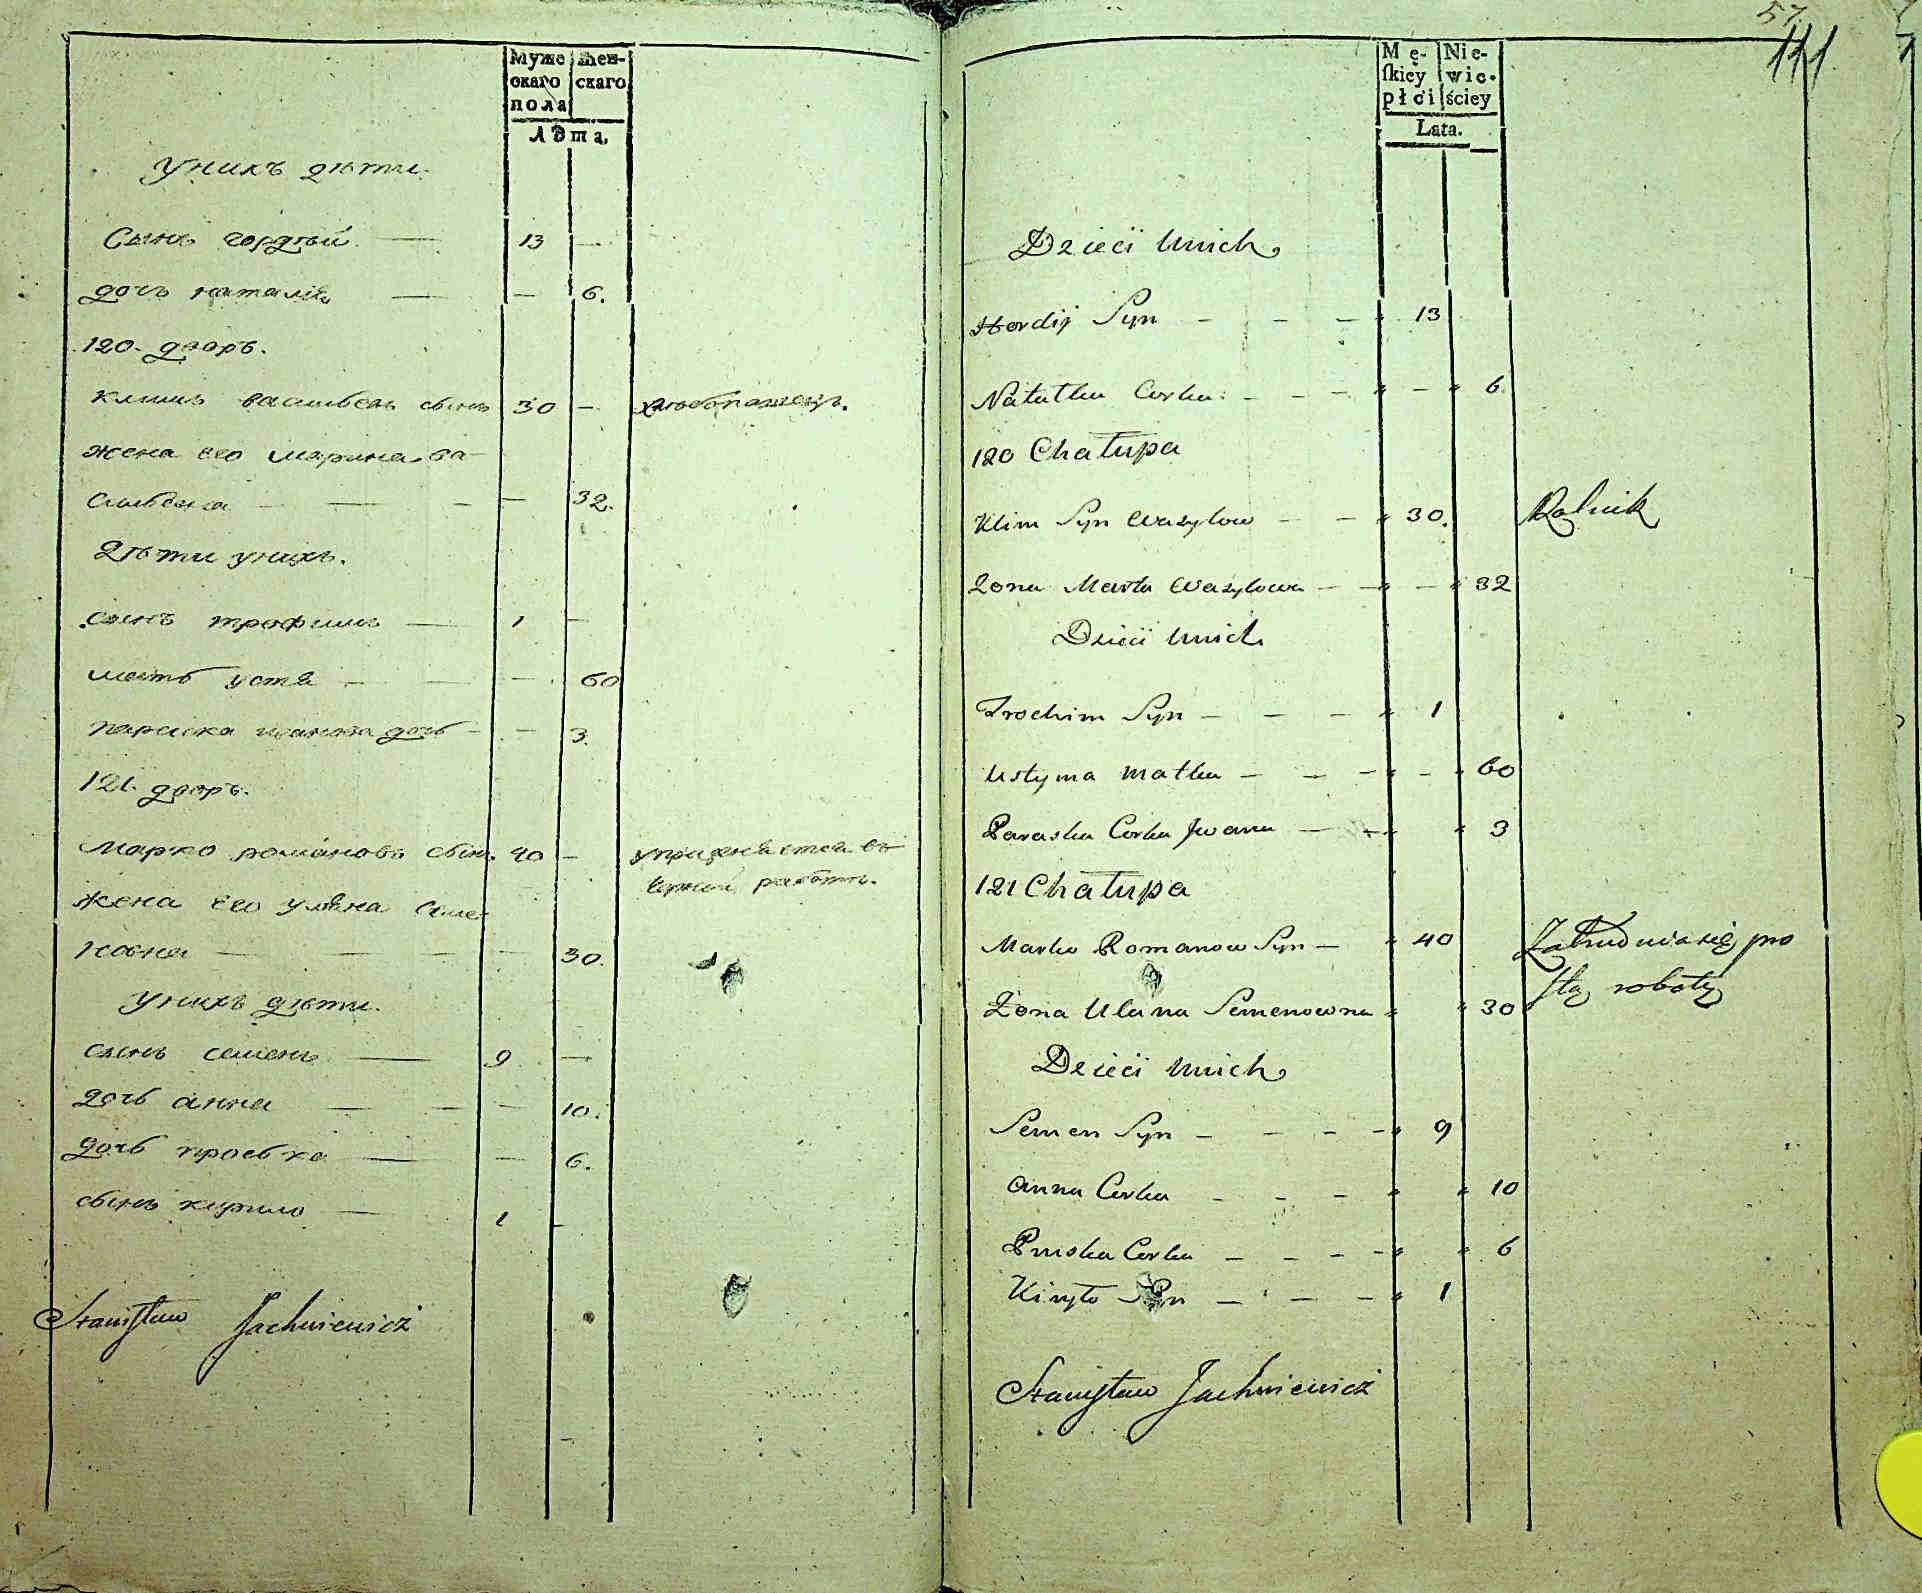 Муже Жен-
скаго скаго
пола
Лѣта.
У нихъ дѣти.
Сынъ гордѣй 13
дочь наталія 6.
120. дворъ.
климъ васильевъ сынъ 30 хлѣбопашецъ.
жена его марина ва-
сильевна 32.
Дѣти у нихъ.
сынъ трофимъ 1
мать устя 60
параска иванова дочь 3.
121. дворъ.
марко романовъ сынъ 40 упражняется въ
черной работѣ.
жена его уляна семе-
новна 30.
У нихъ дѣти.
сынъ семенъ 9
дочь анна 10.
дочь проська 6.
сынъ кирило 1
Stanisław Jachniewicz
57.
111
Mę- Nie-
skiey wie-
płci ściey
Lata.
Dzieci unich
Hordij Syn 13
Natałka Corka 6
120 Chałupa
Klim Syn Wasylow 30. Rolnik
Zona Marta Wasylowa 32
Dzieci unich
Trochim Syn 1
Ustyma matka 60
Paraska Corka Jwana 3
121 Chałupa
Marko Romanow Syn 40 Zatrudnia się pro
stą robotą
Zona Ulana Semenowna 30
Dzieci unich
Semen Syn 9
anna Corka 10
Pruska Corka 6
Kiryło Syn 1
Stanisław Jachniewicz